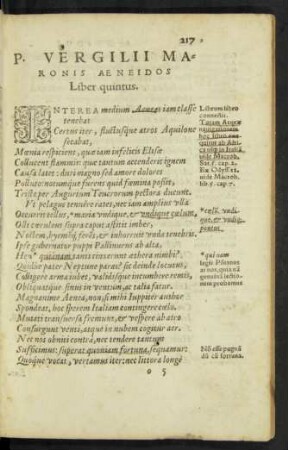 217
P. VERGILII MA-
RONIS AENEIDOS
Liber quintus.
INTEREA medium Aeneas iam classe
tenebat
Certus iter, fluctusque atros Aquilone
secabat,
Mœnia respiciens, quæ iam infelicis Elisæ
Collucent flammis: quæ tantum accenderit ignem
Causa latet: duri magno sed amore dolores
Polluto: notumque furens quid fœmina possit,
Triste per Augurium Teucrorum pectora ducunt.
Vt pelagus tenuêre rates, nec iam amplius vlla
Occurrit tellus, * maria vndique, & vndique cœlum,
Olli cœruleus supra caput astitit imber,
Noctem, hyememque ferens, & inhorruit vnda tenebris.
Ipse gubernator puppe Palinurus ab alta.
Heu * quianam tanti cinxerunt æthera nimbi?
Quidue pater Neptune paras? sic deinde locutus,
Colligere arma iubet, validisque incumbere remis:
Obliquatque sinus in ventum, ac talia fatur.
Magnanime Aenea, non, si mihi Iuppiter author
Spondeat, hoc sperem Italiam contingere cœlo.
Mutati transuersa fremunt, & vespere ab atro
Consurgunt venti, atque in nubem cogitur aër.
Nec nos obniti contrà, nec tendere tantum
Sufficimus: superat quoniam fortuna, sequamur:
Quòque vocat, vertamus iter: nec littora longè
o 5
Librum libro
connectit.
Totam Aeneæ
hoc
ab
vide Macrob.
Sat. l. 5. cap. 2.
Ex Odyss.
vide Macrob.
lib. 5. cap. 7.
* cœli vndi-
que, & vndi-
* qui nam
legit
Nō esse pugnā
dū cū fortuna.